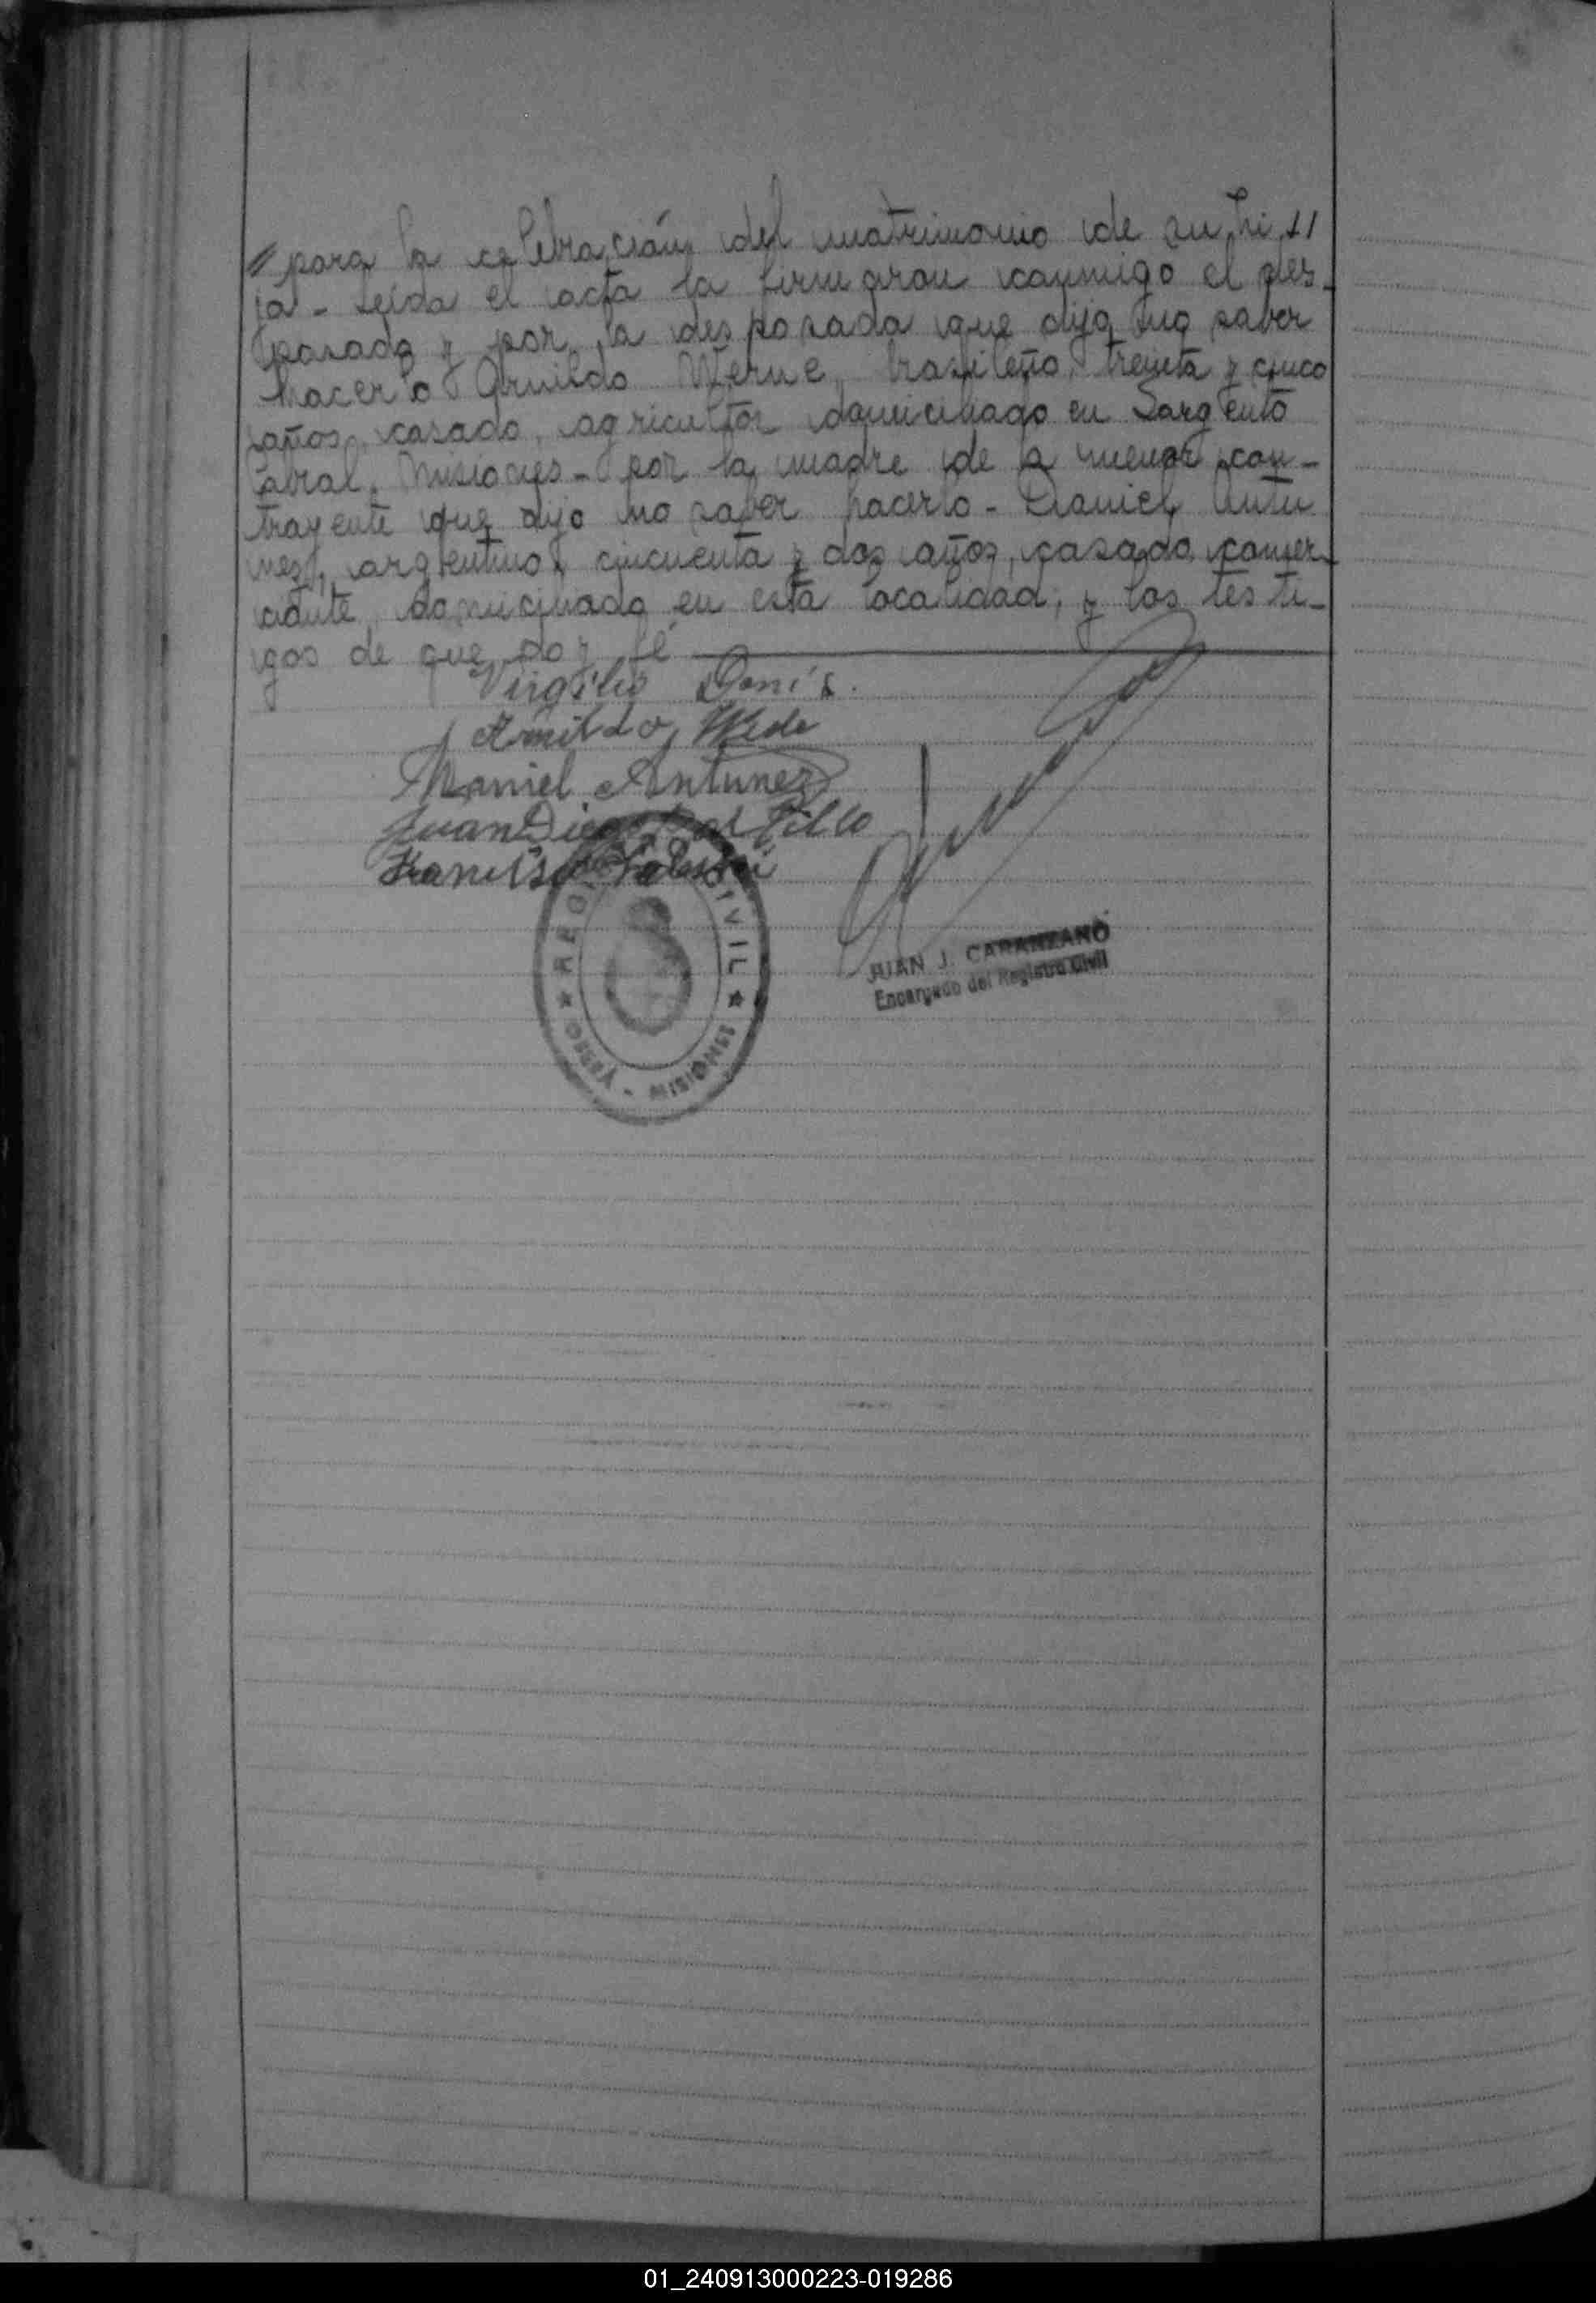 // para la celebración del matrimonio de su hi //
ja - Leída el acta la firmaron conmigo el des-
posado y por la desposada que dijo no saber
hacerlo Arnildo brasileño, treinta y cinco
años, casado, agricultor domiciliado en Sargento
Cabral, Misiones - por la madre de la menor con-
trayente que dijo no saber hacerlo - Daniel Antu
nez, argentino, cincuenta y dos años, casado, comer-
ciante, domiciliado en esta localidad, y los testi-
gos de que doy fé
Virgilio
Arnildo
Daniel Antunez
Juan Diego
Francisco
REG CIVIL
OBERA - MISIONES
JUAN J. CARANZANO
Encargado del Registro Civil
01_240913000223-019286